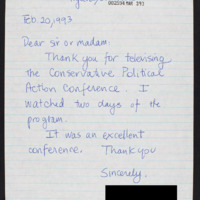 Feb. 20, 1993
Dear Sir or madam:
Thank you for televising
the Conservative Political
Action Conference. I
watched two days of the
program.
It was an excellent
conference. Thank you
Sincerely,